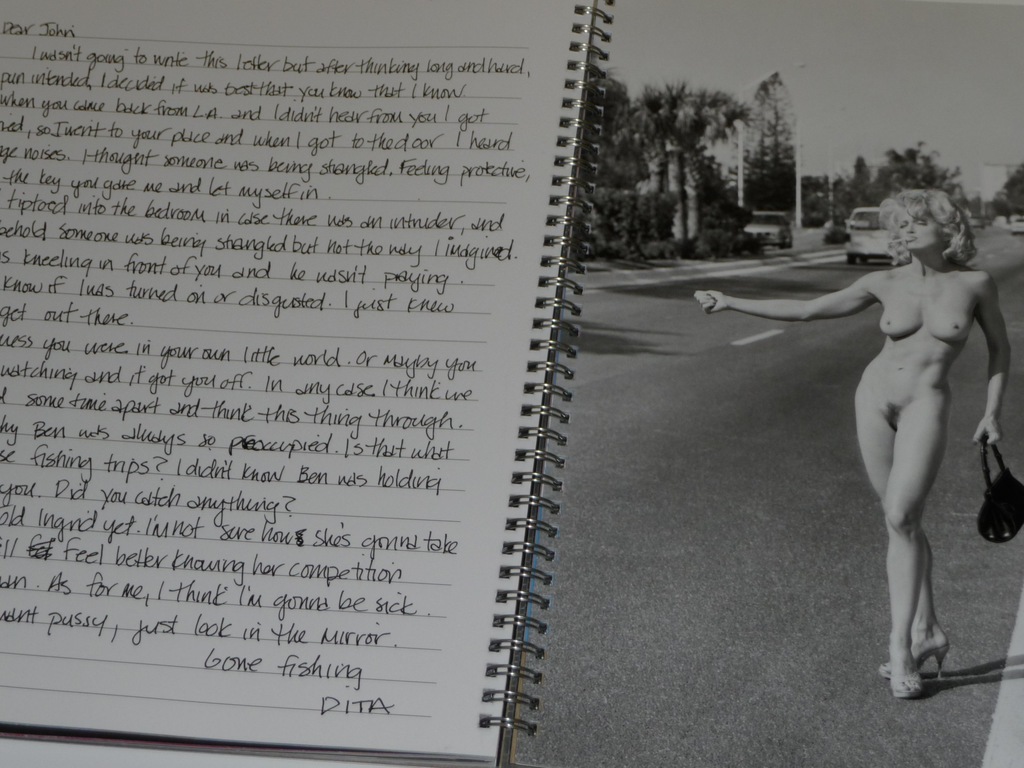 Dear John
I wasn't going to write this letter but after thinking long and hard,
pun intended, I decided it was best that you know that I know
when you came back from L.A. and I didn't hear from you I got
so I went to your place and when I got to the door I heard
noises. I thought someone was being strangled. Feeling protective,
the key you gave me and let myself in.
tiptoed into the bedroom in case there was an intruder, and
behold someone was being strangled but not the way I imagined.
kneeling in front of you and he wasn't praying.
know if I was turned on or disgusted. I just knew
get out there.
you were in your own little world. Or mayby you
watching and it got you off. In any case I think we
some time apart and think this thing through.
Ben was always so preoccupied. Is that what
fishing trips? I didn't know Ben was holding
you. Did you catch anything?
Ingrid yet. I'm not sure how she's gonna take
feel better knowing her competition
As for me, I think I'm gonna be sick.
pussy, just look in the mirror.
Gone fishing
DITA